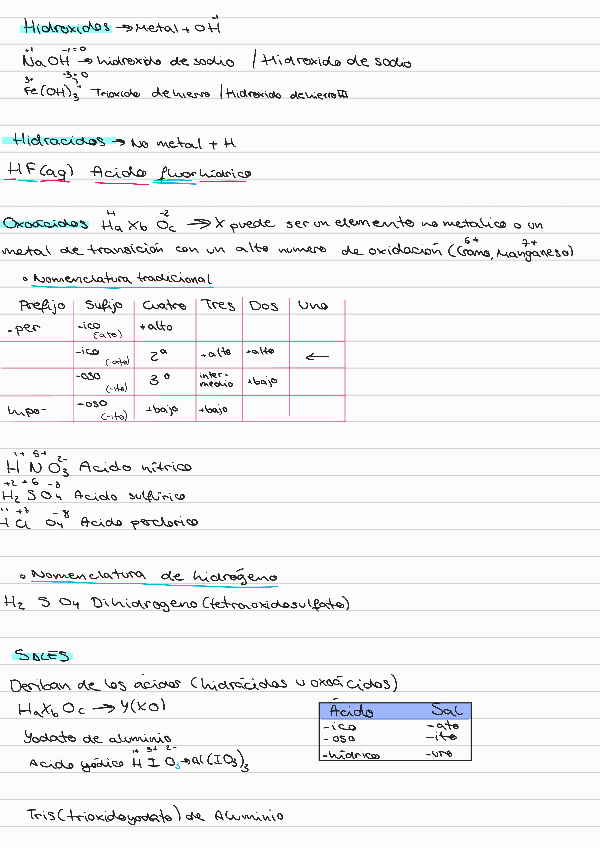 Hidroxidos → Metal + OH⁻¹
+1 -1 = 0
NaOH → hidroxido de sodio / Hidroxido de sodio
3+ -3 = 0
Fe(OH)₃ Trioxido de hierro / Hidroxido de hierro III
Hidracidos → No metal + H
HF(aq) Acido fluorhídrico
Oxoácidos Ha Xb Oc → X puede ser un elemento no metalico o un
metal de transición con un alto numero de oxidación (Cromo, Manganeso)
6+ 7+
• Nomenclatura tradicional
Prefijo Sufijo Cuatro Tres Dos Uno
-per -ico (ato) +alto
-ico (-ato) 2º +alto +alto ←
-oso (-ito) 3º intermedio +bajo
hipo- -oso (-ito) +bajo +bajo
1+ 5+ 2-
H N O₃ Acido nítrico
+2 +6 -8
H₂ S O₄ Acido sulfúrico
+7 -8
H Cl O₄ Acido perclorico
• Nomenclatura de hidrógeno
H₂ S O₄ Dihidrogeno (tetraoxidosulfato)
SALES
Deriban de los ácidos (hidrácidos u oxoácidos)
HaXbOc → Y(XO)
Yodato de aluminio
1+ 5+ 2-
Acido yódico H I O₃ → Al(IO₃)₃
Ácido Sal
-ico -ato
-oso -ito
-hídrico -uro
Tris(trioxidoyodato) de Aluminio